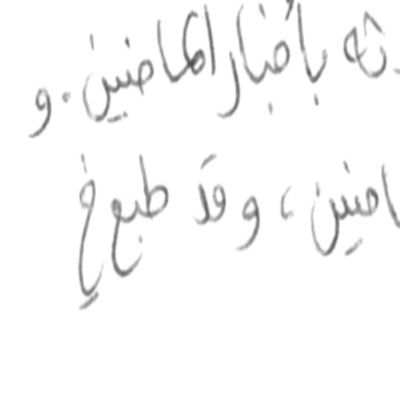 ـثه بأخبار الماضين. و
ـاضين، وقد طبع في